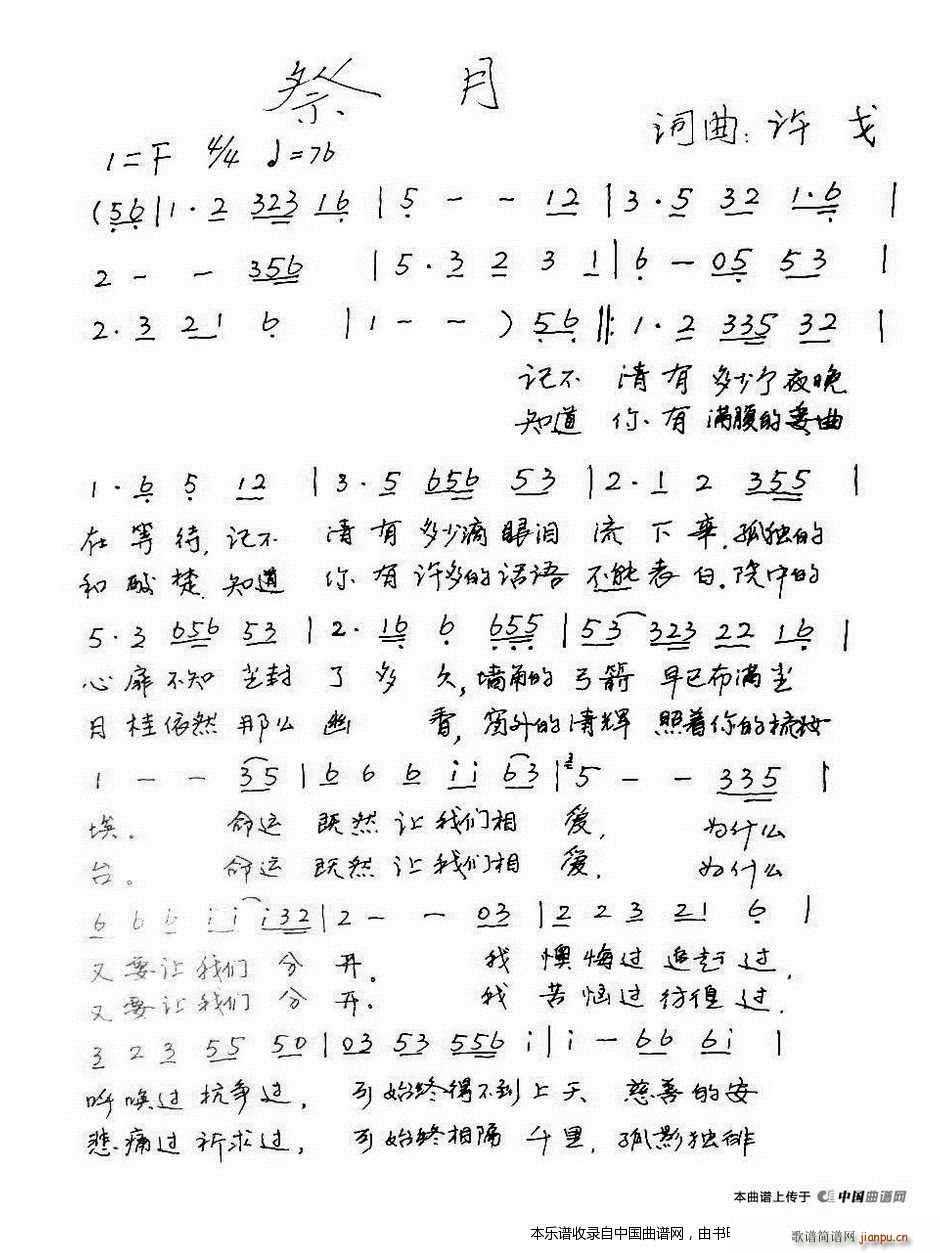 祭 月
词曲:许戈
1=F 4/4 ♩=76
(56|1·2 323 16|5 - - 12|3·5 32 1·6|
2 - - 356 |5·3 2 3 1|6 - 05 53|
2·3 21 6 |1 - - ) 56‖:1·2 335 32|
记不 清有 多少个夜晚
知道 你有 满腹的委曲
1·6 5 12 |3·5 656 53|2·1 2 355|
在等待,记不 清有多少滴眼泪 流下来,孤独的
和酸楚.知道 你有许多的话语 不能表白.院中的
5·3 656 53|2·16 6 655|53 323 22 16|
心扉不知尘封 了多久,墙角的弓箭 早已布满尘
月桂依然那么幽 香,窗外的清辉 照着你的梳妆
1 - - 35|6 6 6 ii 63|5 - - 335|
埃。 命运 既然让我们相 爱, 为什么
台。 命运 既然让我们相 爱, 为什么
6 6 6 ii i32|2 - - 03|2 2 3 21 6|
又要让我们 分开。 我 懊悔过 追赶过,
又要让我们 分开. 我 苦恼过彷徨过,
3 2 3 55 50|03 53 556 i|i - 66 6i|
呼唤过抗争过, 可始终得不到上天 慈善的安
悲痛过祈求过, 可始终相隔千里,孤影独徘
本曲谱上传于 中国曲谱网
本乐谱收录自中国曲谱网,由书
歌谱简谱网 jianpu.cn